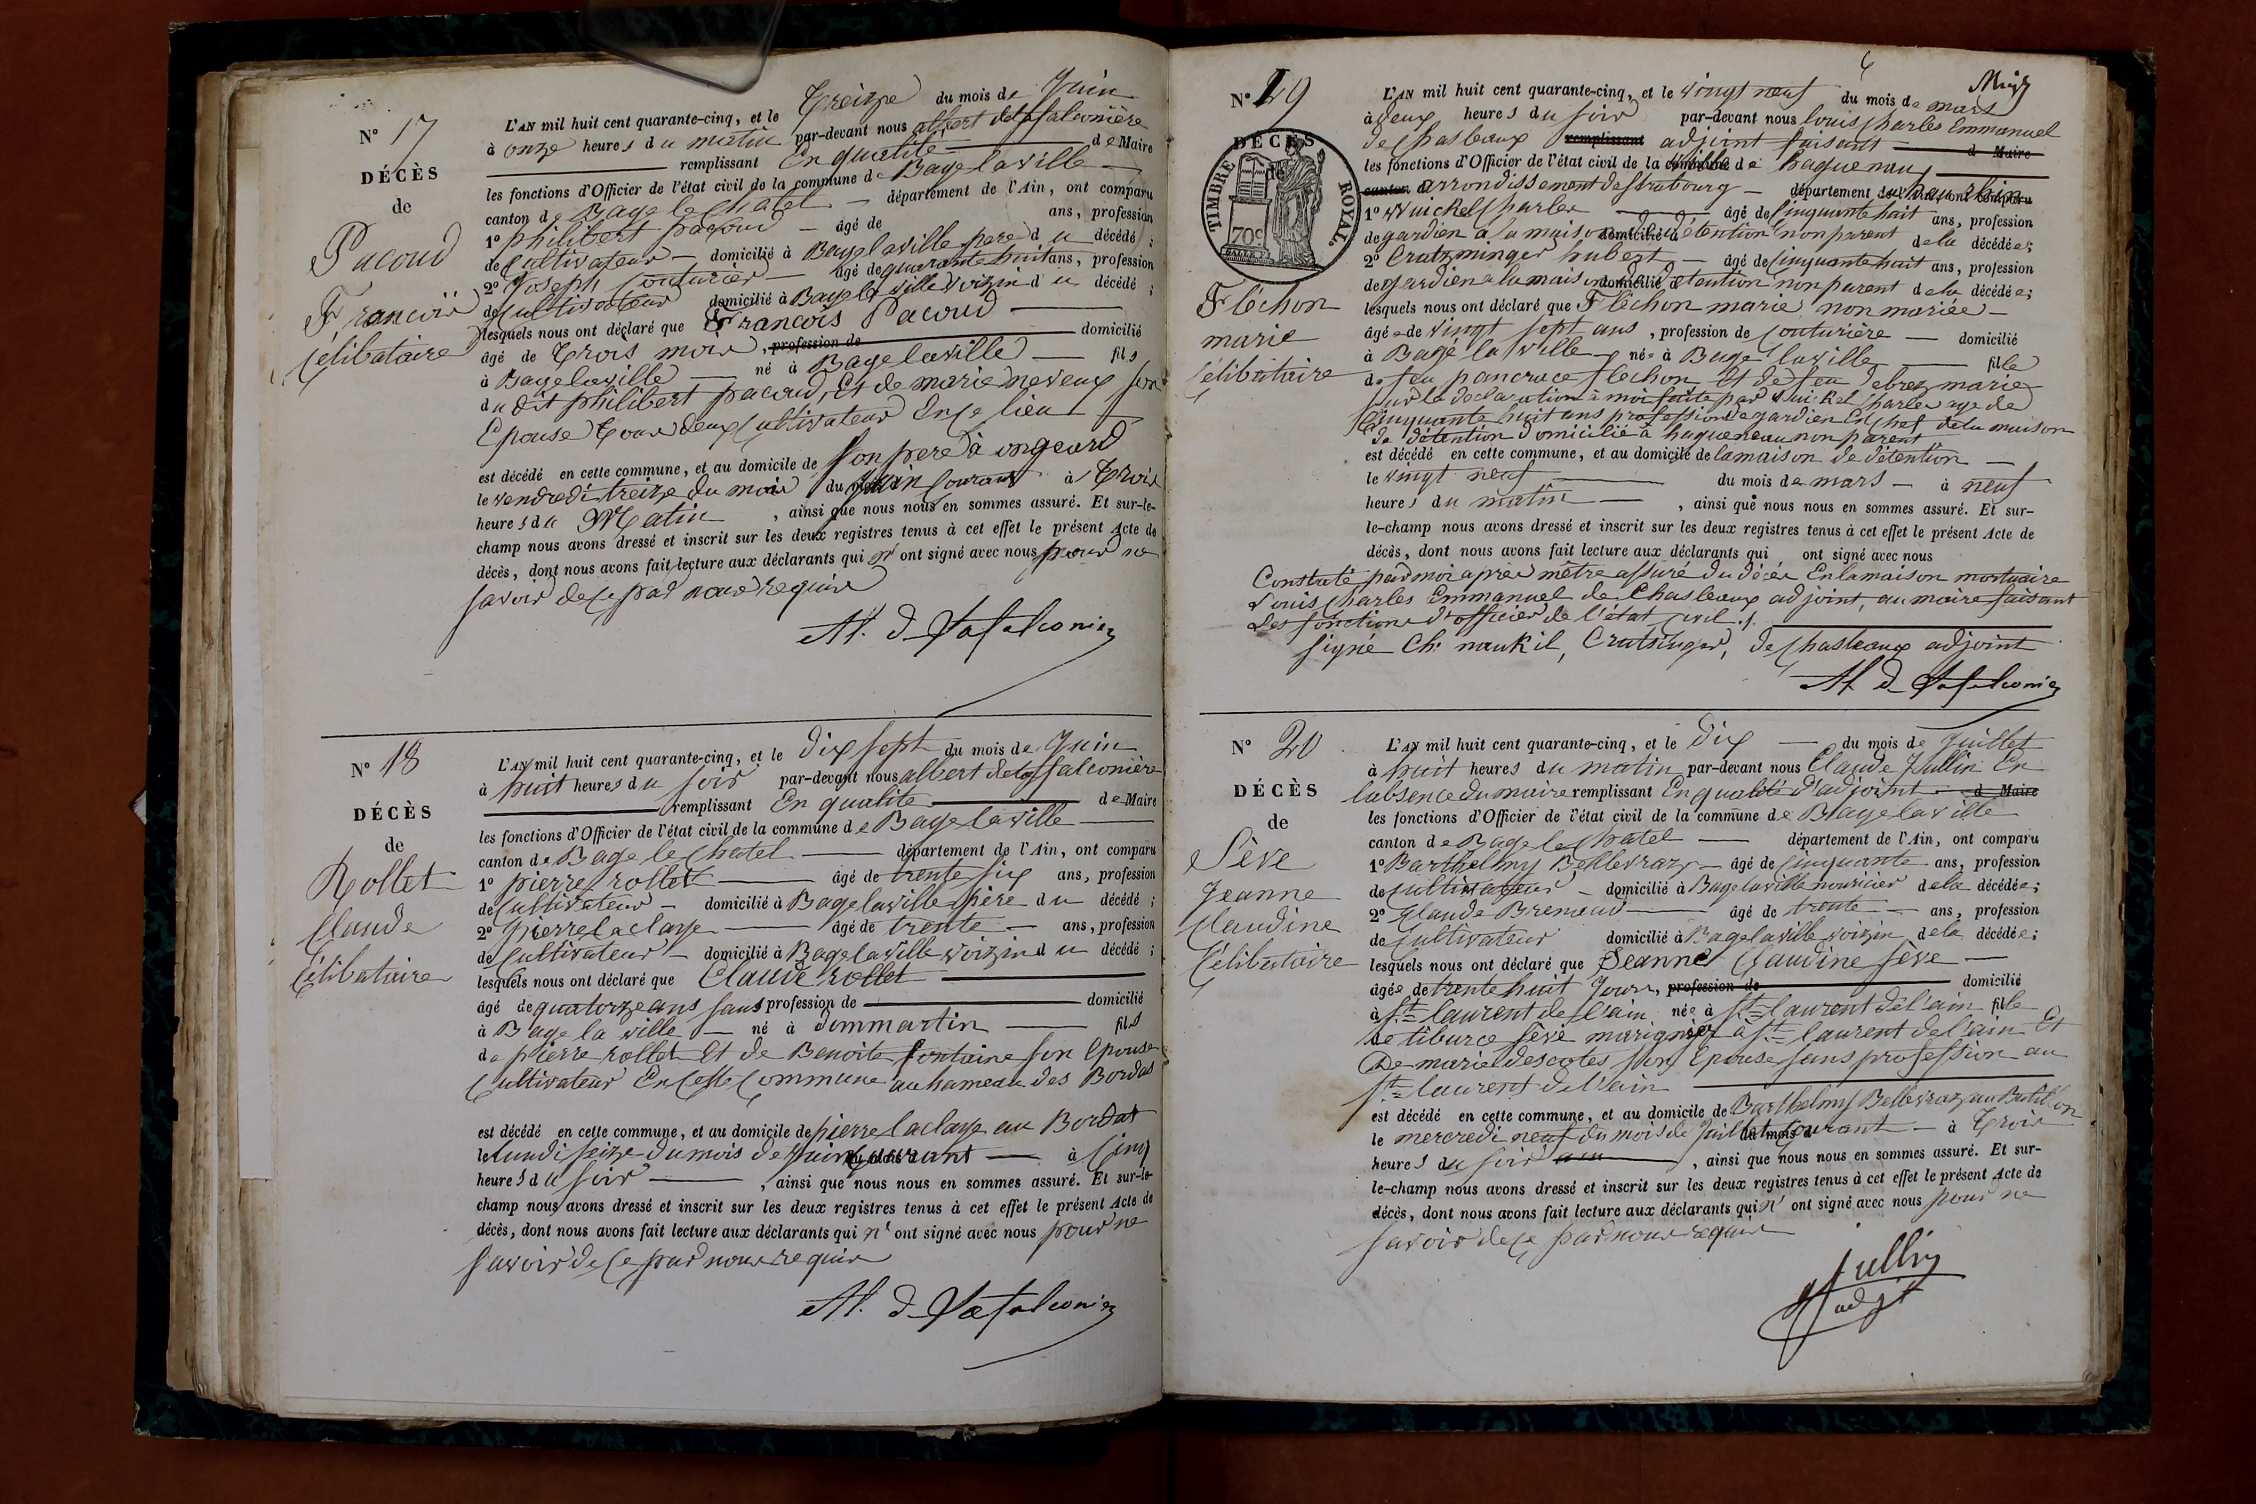 N° 17
DÉCÈS
de
Pacoud
François
Célibataire
L'AN mil huit cent quarante-cinq, et le treize du mois de Juin
à onze heures du matin par-devant nous albert de la falconière
remplissant En qualité de Maire
les fonctions d'Officier de l'état civil de la commune de Bagé la ville
canton de Bage le chatel département de l'Ain, ont comparu
1° philibert pacoud âgé de ans, profession
de Cultivateur domicilié à Bagelaville pere du décédé ;
2° Joseph Couturier âgé de quarante huit ans, profession
de Cultivateur domicilié à Bagelaville voizin du décédé ;
lesquels nous ont déclaré que François Pacoud
âgé de Trois mois, profession de domicilié
à Bagelaville né à Bagelaville fils
du dit philibert pacoud, Et de marie neveux son
Epouse Tous deux Cultivateur En ce lieu
est décédé en cette commune, et au domicile de son pere à ongeard
le vendredi treize du mois du Juin Courant à Trois
heures du Matin, ainsi que nous nous en sommes assuré. Et sur-le-
champ nous avons dressé et inscrit sur les deux registres tenus à cet effet le présent Acte de
décès, dont nous avons fait lecture aux déclarants qui n' ont signé avec nous pour ne
savoir de ce par nous requis
Al. d Lafalconière
N° 18
DÉCÈS
de
Rollet
Claude
Célibataire
L'AN mil huit cent quarante-cinq, et le dix sept du mois de Juin
à huit heures du soir par-devant nous albert de la falconière
remplissant En qualité de Maire
les fonctions d'Officier de l'état civil de la commune de Bage la ville
canton de Bage le chatel département de l'Ain, ont comparu
1° pierre rollet âgé de trente six ans, profession
de Cultivateur domicilié à Bagelaville père du décédé ;
2° pierre laclaye âgé de trente ans, profession
de Cultivateur domicilié à Bagelaville voizin du décédé ;
lesquels nous ont déclaré que Claude rollet
âgé de quatorze ans sans profession de domicilié
à Bage la ville né à Dommartin fils
de pierre rollet Et de Benoite fontaine son Epouse
Cultivateur En cette Commune au hameau des Bordas
est décédé en cette commune, et au domicile de pierre laclaye au Bordas
le lundi seize du mois de Juin courant à Cinq
heures du soir, ainsi que nous nous en sommes assuré. Et sur-le-
champ nous avons dressé et inscrit sur les deux registres tenus à cet effet le présent Acte de
décès, dont nous avons fait lecture aux déclarants qui n' ont signé avec nous pour ne
savoir de ce par nous requis
Al. d Lafalconière
N° 19
DÉCÈS
de
TIMBRE ROYAL
70c
Fléchon
marie
Célibataire
L'AN mil huit cent quarante-cinq, et le vingt neuf du mois de mars
à deux heures du soir par-devant nous louis Charles Emmanuel
de Chasteaux remplissant adjoint faisant d Maire
les fonctions d'Officier de l'état civil de la ville de haguenau
canton d arrondissement de strasbourg département du bas rhin
1° Wuickel Charles âgé de Cinquante huit ans, profession
de gardien à la maison de détention non parent de la décédée;
2° Cratzminger hubert âgé de Cinquante huit ans, profession
de gardien a la maison de detention non parent de la décédée;
lesquels nous ont déclaré que Fléchon marie non mariée
âgée de vingt sept ans, profession de Couturière domicilié
à Bagé la ville née à Bage laville fille
de feu pancrace flechon Et de feu Debrez marie
sur la déclaration a moi faite par Wuickel Charles age de
Cinquante huit ans profession de gardien En chef de la maison
de détention domicilié à haguenau non parent
est décédé en cette commune, et au domicile de la maison de détention
le vingt neuf du mois de mars à neuf
heures du matin, ainsi que nous nous en sommes assuré. Et sur-
le-champ nous avons dressé et inscrit sur les deux registres tenus à cet effet le présent Acte de
décès, dont nous avons fait lecture aux déclarants qui ont signé avec nous
Constaté par moi après mêtre assuré du décès En la maison mortuaire
Louis Charles Emmanuel de Chasteaux adjoint, au maire faisant
Les fonctions d'officier de l'état civil
signé Ch. naukil, Cratsinger, de Chasteaux adjoint
Al. d Lafalconière
N° 20
DÉCÈS
de
Sève
Jeanne
Claudine
Célibataire
L'AN mil huit cent quarante-cinq, et le dix du mois de Juillet
à huit heures du matin par-devant nous Claude Jullin En
l'absence du maire remplissant En qualité d'adjoint d Maire
les fonctions d'Officier de l'état civil de la commune de Bagelaville
canton de Bage le chatel département de l'Ain, ont comparu
1° Barthelmy Bellevraz âgé de Cinquante ans, profession
de Cultivateur domicilié à Bagelaville nouricier de la décédée;
2° Claude Brenaud âgé de trente ans, profession
de Cultivateur domicilié à Bagelaville voizin de la décédée;
lesquels nous ont déclaré que Jeanne Claudine sève
âgée de trente huit Jours, profession de domicilié
à St laurent de l'ain née à St laurent de l'ain fille
de tiburce sève marignier à St laurent de l'ain Et
De marie descotes son Epouse sans profession au
St laurent de l'ain
est décédé en cette commune, et au domicile de Barthelmy Bellevraz au Butillon
le mercredi neuf du mois de Juillet Courant à Trois
heures du soir, ainsi que nous nous en sommes assuré. Et sur-
le-champ nous avons dressé et inscrit sur les deux registres tenus à cet effet le présent Acte de
décès, dont nous avons fait lecture aux déclarants qui n' ont signé avec nous pour ne
savoir de ce par nous requis
Jullin
adjt